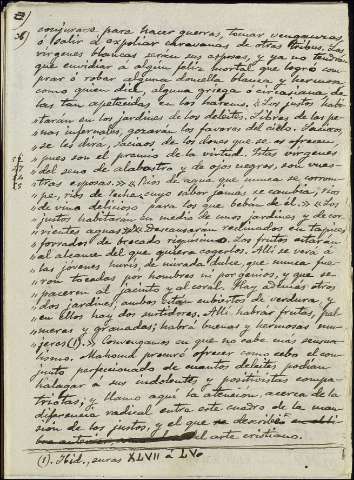 38)
conjurarse para hacer guerras, tomar venganzas,
ó salir á expoliar caravanas de otras tribus. Las
vírgenes blancas serán sus esposas, y ya no tendrán
que envidiar á algun feliz mortal que logró com-
prar ó robar alguna doncella blanca y hermosa
como quien dice, alguna griega ó circasiana de
las tan apetecidas en los harems. «Los justos habi-
tarán en los jardines de los deleites. Libres de las pe-
nas infernales, gozarán los favores del cielo. Saciaos,
se les dirá, saciaos de los dones que se os ofrecen,
» pues son el premio de la virtud. Estas vírgenes
» del seno de alabastro y de ojos negros, son vues-
» tras esposas.» «Rios de agua que nunca se corrom-
pe, rios de leche, cuyo sabor jamás se cambia; rios
» de vino delicioso para los que beban de él.» «Los
» justos habitarán en medio de unos jardines y de cor-
» rientes aguas» «Descansarán reclinados en tapices
» forrados de brocado riquísimo. Los frutos estarán
» al alcance del que quiera cogerlos. Allí se verá, á
» las jóvenes huris, de mirada dulce, que nunca fue-
» ron tocadas por hombres ni por genios, y que se
» parecen al jacinto y al coral. Hay además otros
» dos jardines, ambos están cubiertos de verdura, y
» en ellos hay dos surtidores. Allí habrá frutas, pal-
» meras y granadas; habrá buenas y hermosas mu-
» jeres (1).» Convengamos en que no cabe más sensua-
lismo. Mahoma procuró ofrecer como cebo el con-
junto perfeccionado de cuantos deleites podian
halagar á sus indolentes y positivistas compa-
triotas; y llamo aqui la atencion, acerca de la
diferencia radical entre este cuadro de la man-
sión de los justos, y el que se describió
del arte cristiano.
(1). Ibid., suras XLVII á LV.